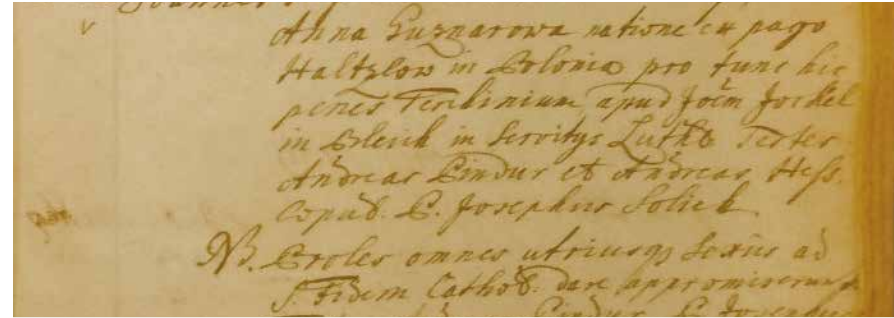 Anna Guznarowa natione ex pago
Haltzlow in Polonia pro tunc hic
penes Teschinium apud Joem Jockel
in Bleich in servitys Luth. Testes
Andreas Pindur et Andreas Hess.
Copul. P. Josephus Solick
NB. Proles omnes utriusq sexus ad
S. Fidem Cathol. dare appromiserunt
Pindur P. Josephus